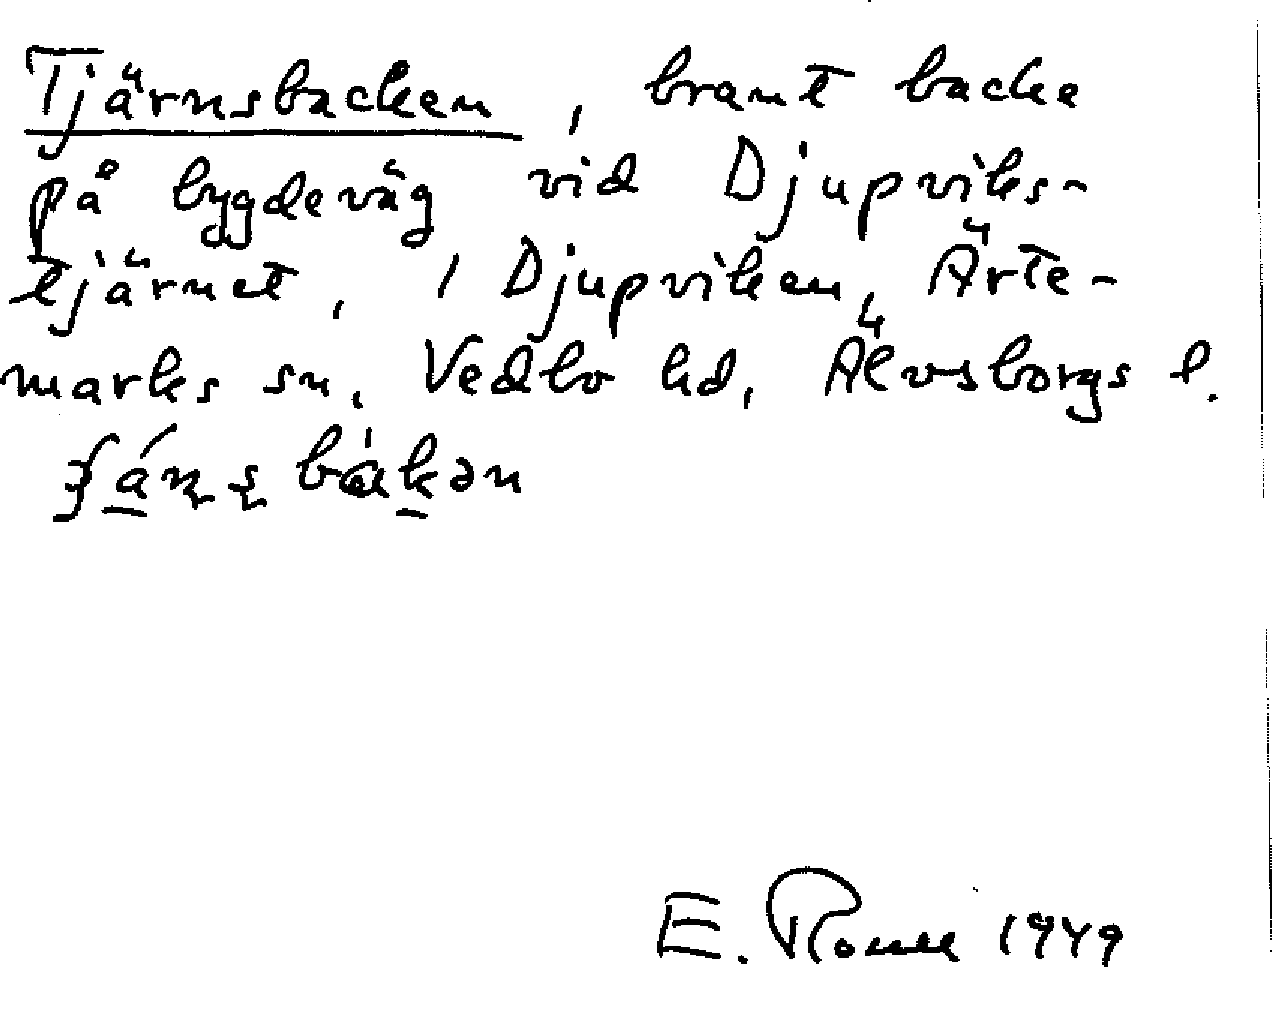 Tjärnsbacken, brant backe
på bygdeväg vid Djupviks-
tjärnet, i Djupviken, Ärte-
marks sn, Vedbo hd, Älvsborgs l.
E. 1949